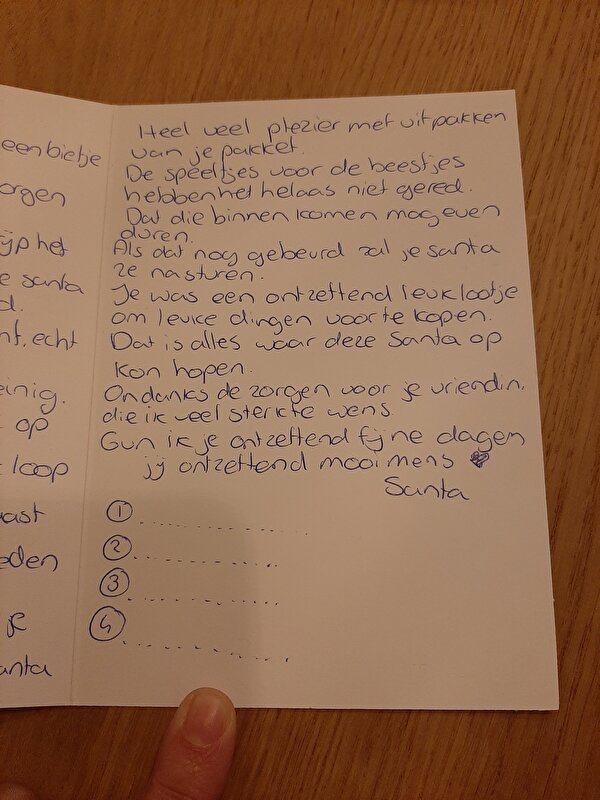 een bietje
orgen
ijp het
e santa
d.
nt, echt
einig.
op
loop
aast
eden
je
anta
Heel veel plezier met uitpakken
van je pakket.
De speeltjes voor de beestjes
hebben het helaas niet gered.
Dat die binnen komen mag even
duren.
Als dat nog gebeurd zal je santa
ze nasturen.
Je was een ontzettend leuk lootje
om leuke dingen voor te kopen.
Dat is alles waar deze Santa op
kon hopen.
Ondanks de zorgen voor je vriendin,
die ik veel sterkte wens.
Gun ik je ontzettend fijne dagen
jij ontzettend mooi mens
Santa
1 ....................
2 ....................
3 ....................
4 ....................